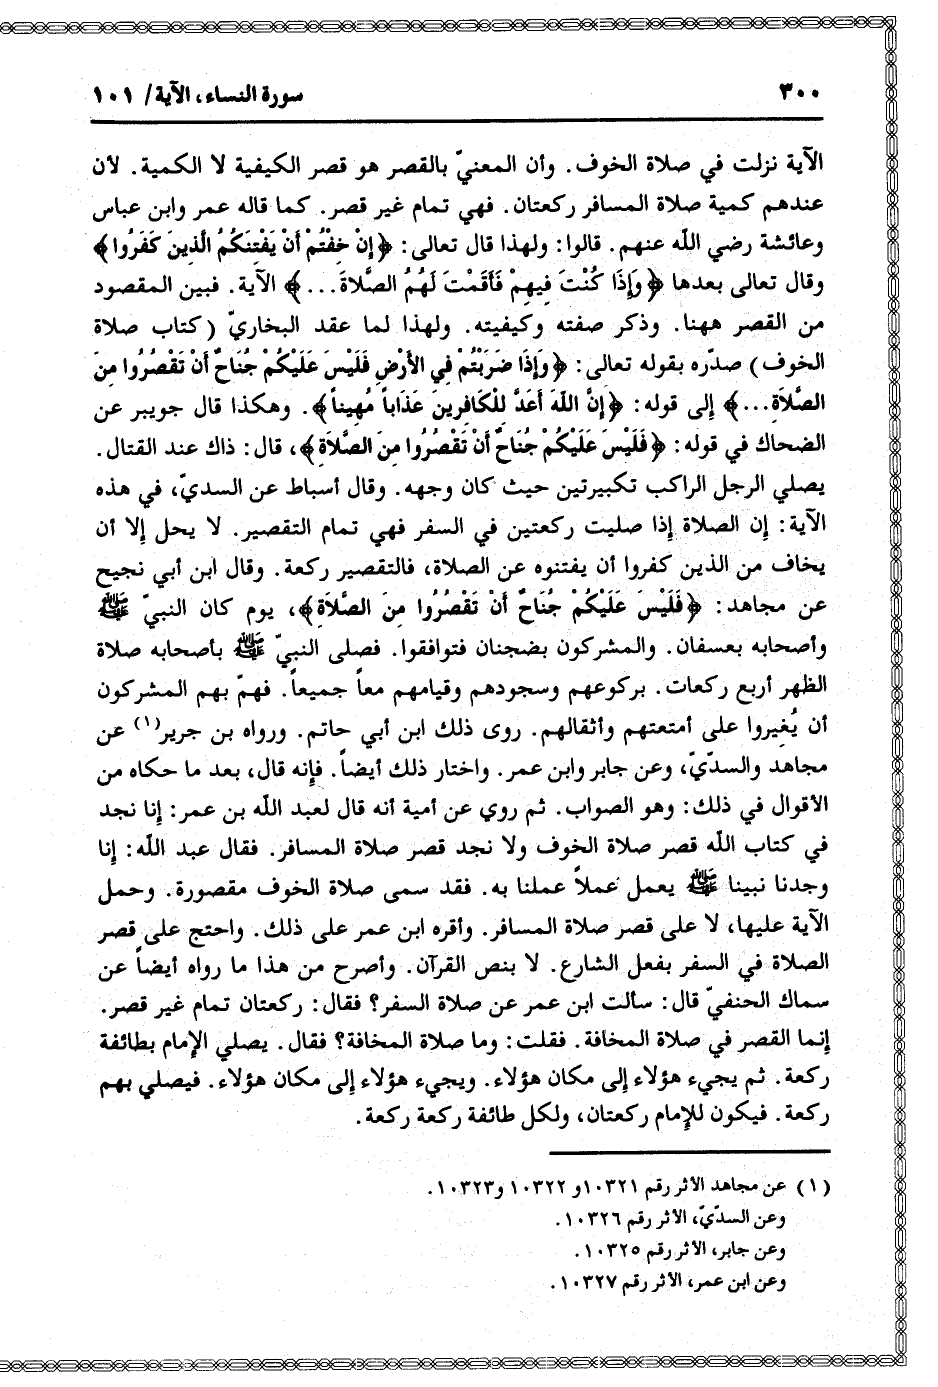 ٣٠٠
سورة النساء، الآية/ ١٠١
الآية نزلت في صلاة الخوف. وأن المعنيّ بالقصر هو قصر الكيفية لا الكمية. لأن
عندهم كمية صلاة المسافر ركعتان. فهي تمام غير قصر. كما قاله عمر وابن عباس
وعائشة رضي الله عنهم. قالوا: ولهذا قال تعالى: ﴿إِنْ خِفْتُمْ أَنْ يَفْتِنَكُمُ الَّذِينَ كَفَرُوا﴾
وقال تعالى بعدها ﴿وَإِذَا كُنْتَ فِيهِمْ فَأَقَمْتَ لَهُمُ الصَّلاَةَ...﴾ الآية. فبين المقصود
من القصر ههنا. وذكر صفته وكيفيته. ولهذا لما عقد البخاريّ (كتاب صلاة
الخوف) صدّره بقوله تعالى: ﴿وَإِذَا ضَرَبْتُمْ فِي الأَرْضِ فَلَيْسَ عَلَيْكُمْ جُنَاحٌ أَنْ تَقْصُرُوا مِنَ
الصَّلاَةِ...﴾ إلى قوله: ﴿إِنَّ اللّهَ أَعَدَّ لِلْكَافِرِينَ عَذَاباً مُهِيناً﴾. وهكذا قال جويبر عن
الضحاك في قوله: ﴿فَلَيْسَ عَلَيْكُمْ جُنَاحٌ أَنْ تَقْصُرُوا مِنَ الصَّلاَةِ﴾، قال: ذاك عند القتال.
يصلي الرجل الراكب تكبيرتين حيث كان وجهه. وقال أسباط عن السديّ، في هذه
الآية: إن الصلاة إذا صليت ركعتين في السفر فهي تمام التقصير. لا يحل إلا أن
يخاف من الذين كفروا أن يفتنوه عن الصلاة، فالتقصير ركعة. وقال ابن أبي نجيح
عن مجاهد: ﴿فَلَيْسَ عَلَيْكُمْ جُنَاحٌ أَنْ تَقْصُرُوا مِنَ الصَّلاَةِ﴾، يوم كان النبيّ ﷺ
وأصحابه بعسفان. والمشركون بضجنان فتوافقوا. فصلى النبيّ ﷺ بأصحابه صلاة
الظهر أربع ركعات. بركوعهم وسجودهم وقيامهم معاً جميعاً. فهمّ بهم المشركون
أن يُغيروا على أمتعتهم وأثقالهم. روى ذلك ابن أبي حاتم. ورواه بن جرير(١) عن
مجاهد والسدّيّ، وعن جابر وابن عمر. واختار ذلك أيضاً. فإنه قال، بعد ما حكاه من
الأقوال في ذلك: وهو الصواب. ثم روي عن أمية أنه قال لعبد الله بن عمر: إنا نجد
في كتاب الله قصر صلاة الخوف ولا نجد قصر صلاة المسافر. فقال عبد الله: إنا
وجدنا نبينا ﷺ يعمل عملاً عملنا به. فقد سمى صلاة الخوف مقصورة. وحمل
الآية عليها، لا على قصر صلاة المسافر. وأقره ابن عمر على ذلك. واحتج على قصر
الصلاة في السفر بفعل الشارع. لا بنص القرآن. وأصرح من هذا ما رواه أيضاً عن
سماك الحنفيّ قال: سألت ابن عمر عن صلاة السفر؟ فقال: ركعتان تمام غير قصر.
إنما القصر في صلاة المخافة. فقلت: وما صلاة المخافة؟ فقال. يصلي الإمام بطائفة
ركعة. ثم يجيء هؤلاء إلى مكان هؤلاء. ويجيء هؤلاء إلى مكان هؤلاء. فيصلي بهم
ركعة. فيكون للإمام ركعتان، ولكل طائفة ركعة ركعة.
(١) عن مجاهد الأثر رقم ١٠٣٢١و ١٠٣٢٢ و١٠٣٢٣.
وعن السدّيّ، الأثر رقم ١٠٣٢٦.
وعن جابر، الأثر رقم ١٠٣٢٥.
وعن ابن عمر، الأثر رقم ١٠٣٢٧.